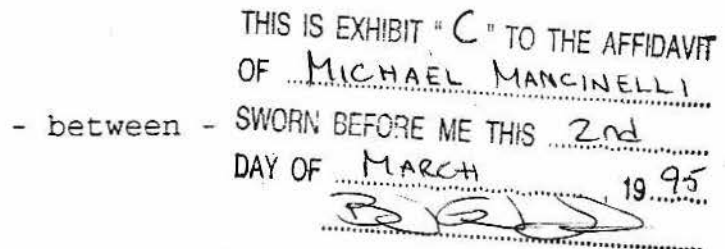 THIS IS EXHIBIT " C " TO THE AFFIDAVIT
OF MICHAEL MANCINELLI
- between - SWORN BEFORE ME THIS 2nd
DAY OF MARCH 19 95